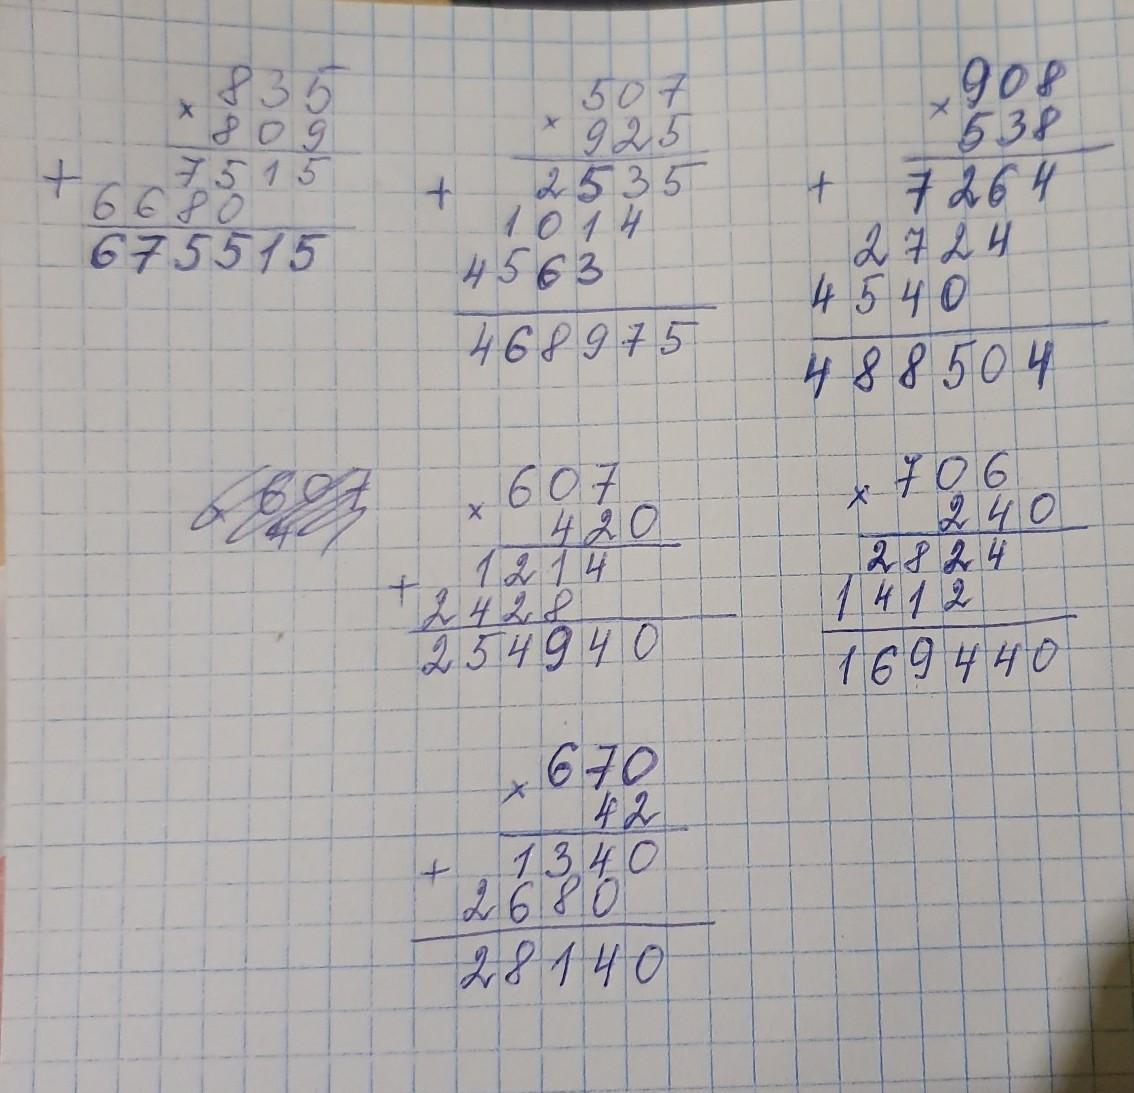 835
× 809
+ 7515
6680
675515
507
× 925
+ 2535
1014
4563
468975
908
× 538
+ 7264
2724
4540
488504
607
4
× 607
420
+ 1214
2428
254940
× 706
240
2824
1412
169440
× 670
42
+ 1340
2680
28140